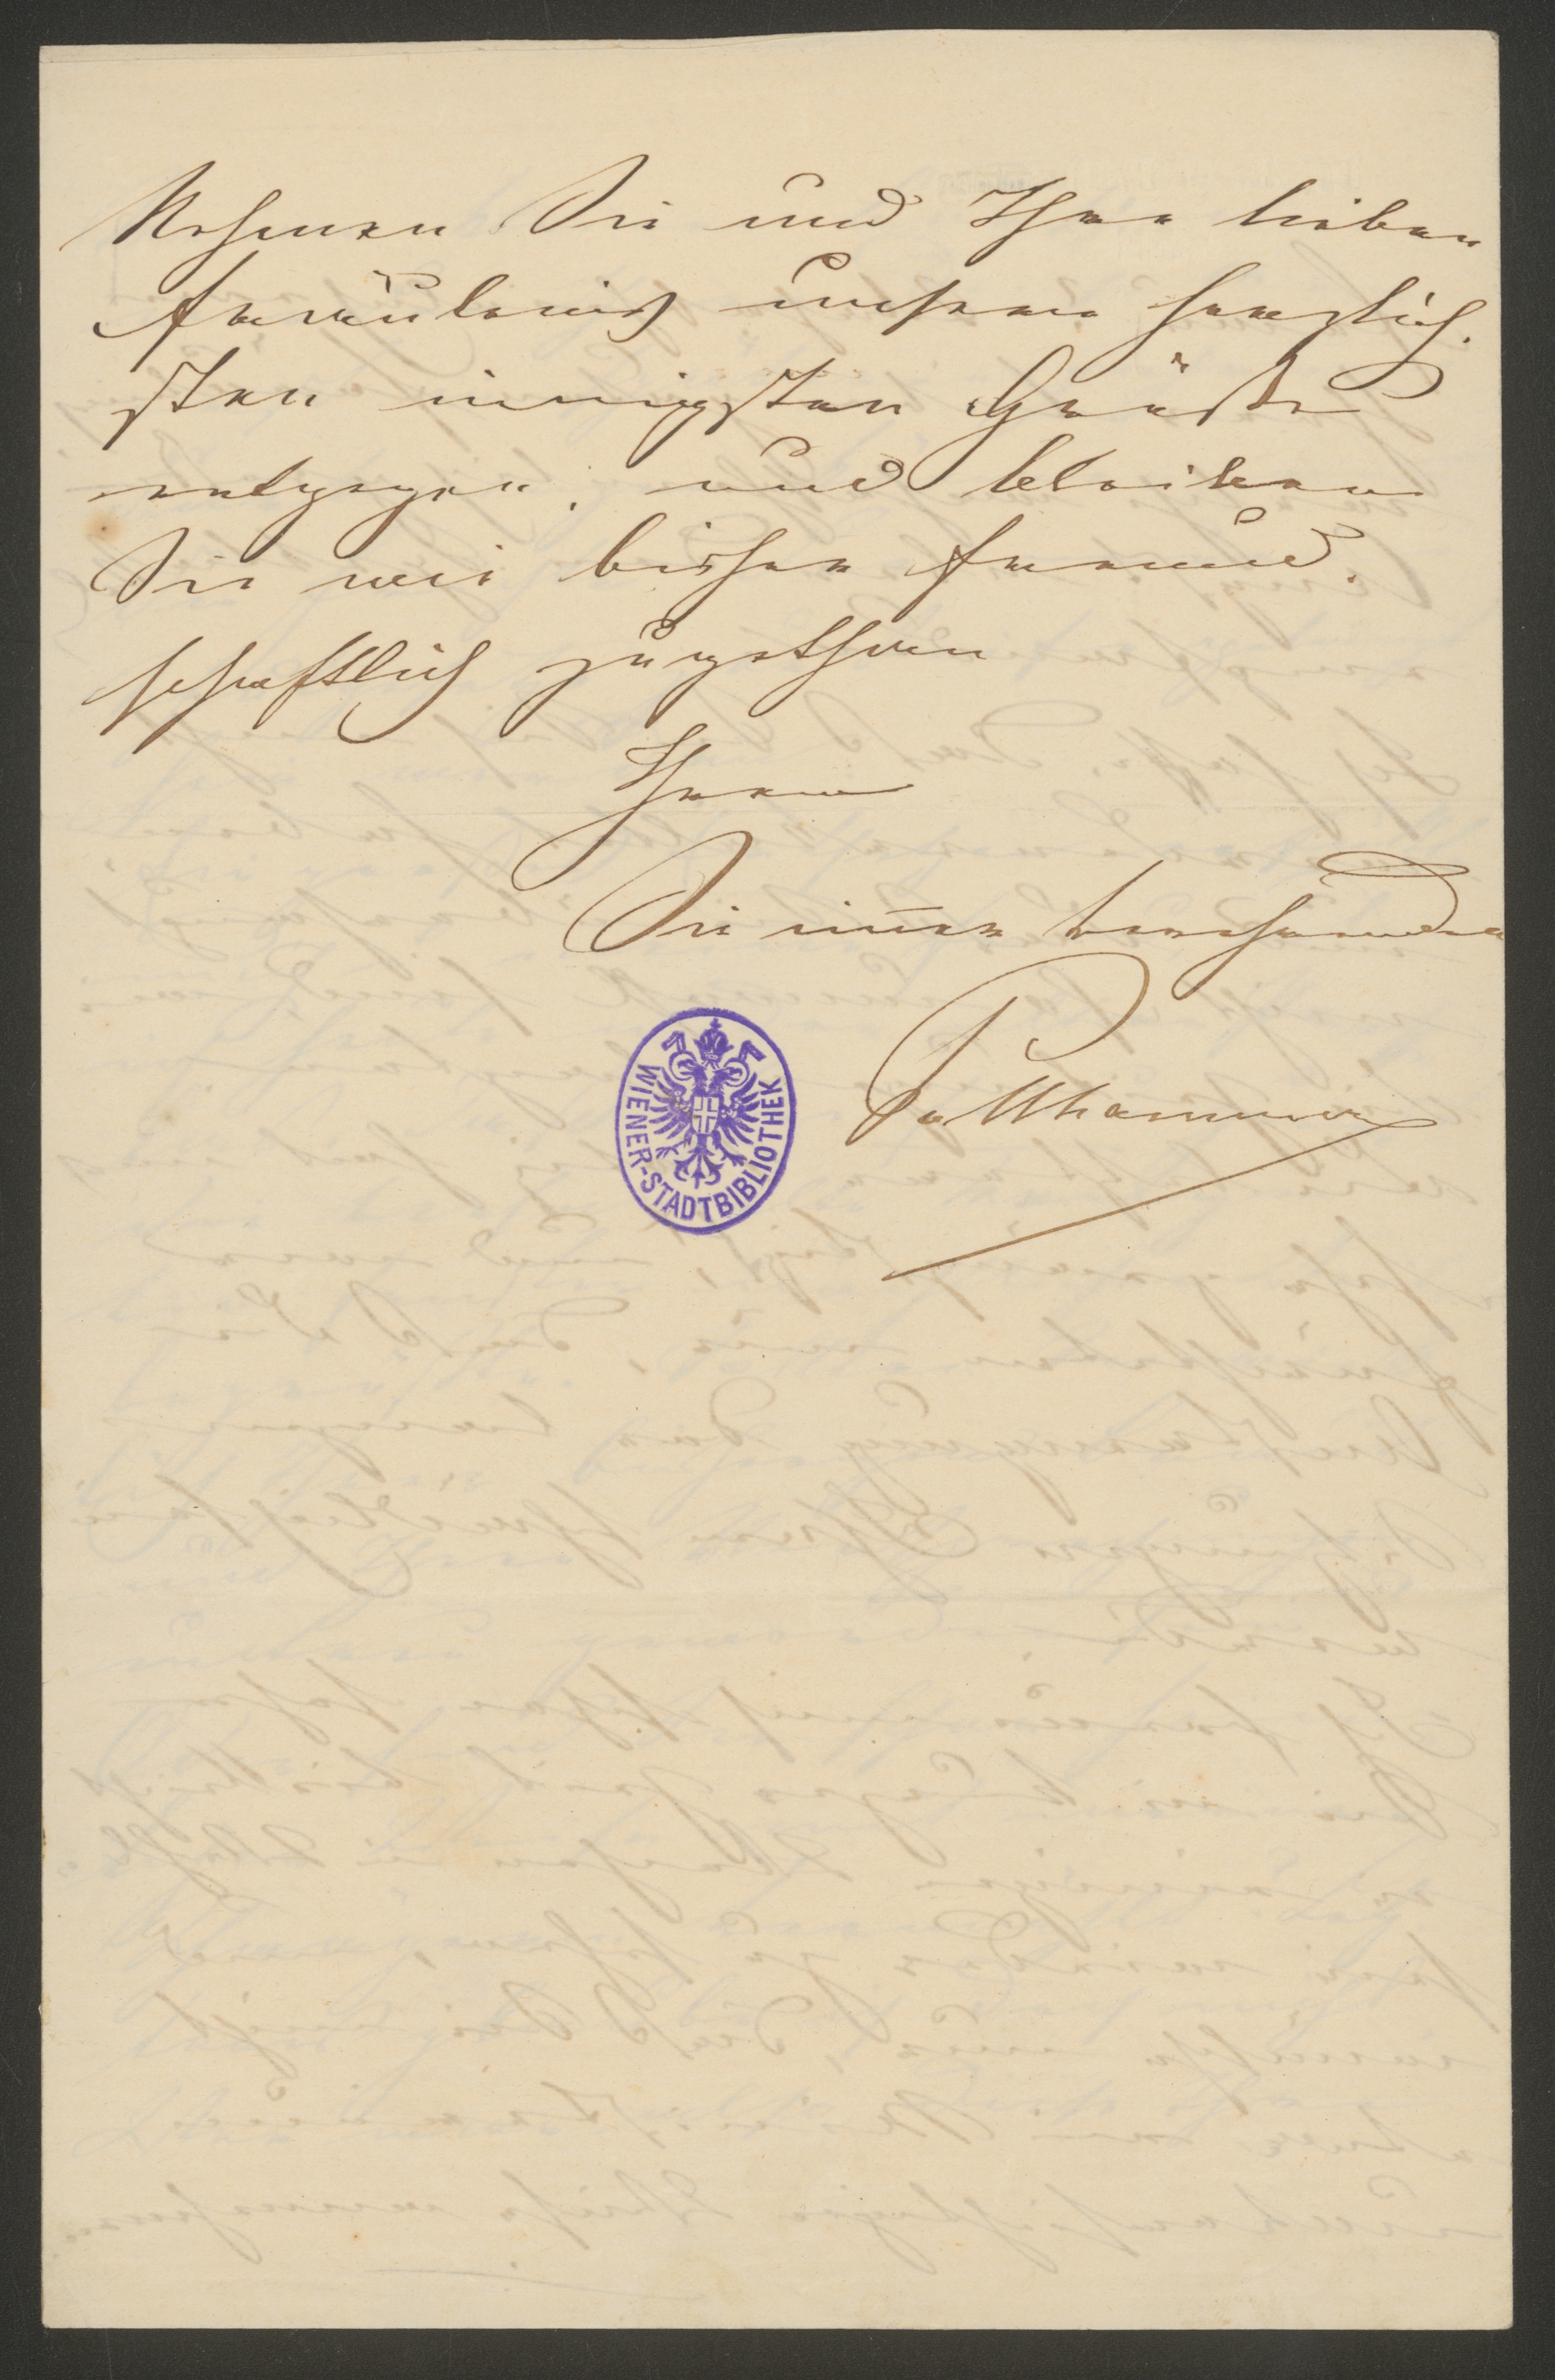 Nehmen Sie und Ihre lieben
Fräuleins unsere herzlich-
sten innigsten Grüße
entgegen, und bleiben
Sie wie bisher freund-
schaftlich zugethan
Ihrem
Sie immer verehrenden
WIENER-STADTBIBLIOTHEK